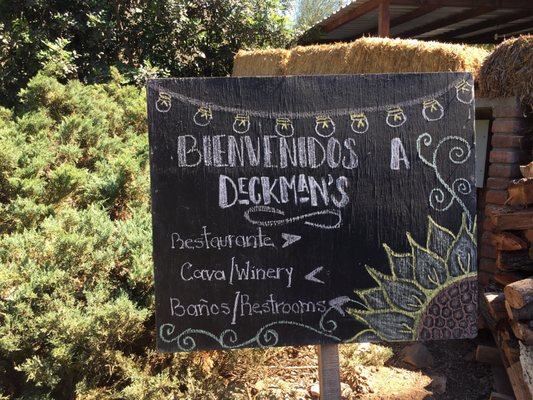 BIENVENIDOS A
DECKMAN'S
Restaurante >
Cava/Winery <
Baños/Restrooms